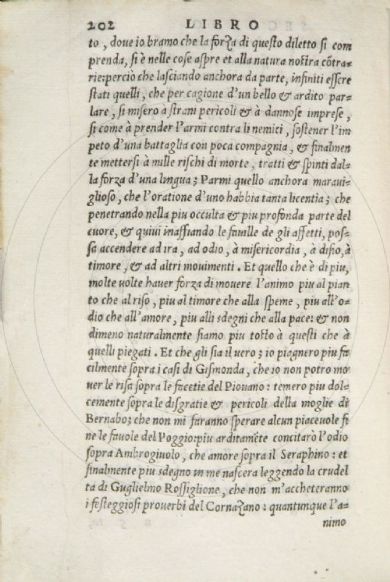 202 LIBRO
to, doue io bramo che la forza di questo diletto si com
prenda, si è nelle cose aspre et alla natura nostra cõtra-
rie: percio che lasciando anchora da parte, infiniti essere
stati quelli, che per cagione d'un bello & ardito par-
lare, si misero a strani pericoli & à dannose imprese,
si come à prender l'armi contra li nemici, sostener l'im
peto d'una battaglia con poca compagnia, & finalmen
te mettersi à mille rischi di morte, tratti & spinti dal-
la forza d'una lingua; Parmi quello anchora maraui-
glioso, che l'oratione d'uno habbia tanta licentia; che
penetrando nella piu occulta & piu profonda parte del
cuore, & quiui inaffiando le fauille de gli affetti, pos-
sa accendere ad ira, ad odio, à misericordia, à disio, à
timore, & ad altri mouimenti. Et quello che è di piu,
molte volte hauer forza di mouere l'animo piu al pian
to che al riso, piu al timore che alla speme, piu all'o-
dio che all'amore, piu alli sdegni che alla pace: & non
dimeno naturalmente siamo piu tosto à questi che à
quelli piegati. Et che gli sia il uero; io piagnero piu fa
cilmente sopra i casi di Gismonda, che io non potro mo
uer le risa sopra le facetie del Piouano: temero piu dol-
cemente sopra le disgratie & pericoli della moglie di
Bernabo; che non mi faranno sperare alcun piaceuole fi
ne le fauole del Poggio: piu arditamẽte concitarò l'odio
sopra Ambrogiuolo, che amore sopra il Seraphino: et
finalmente piu sdegno in me nascera leggendo la crudel
ta di Guglielmo Rossiglione, che non m'accheteranno
i festeggiosi prouerbi del Cornazano: quantunque l'a-
nimo